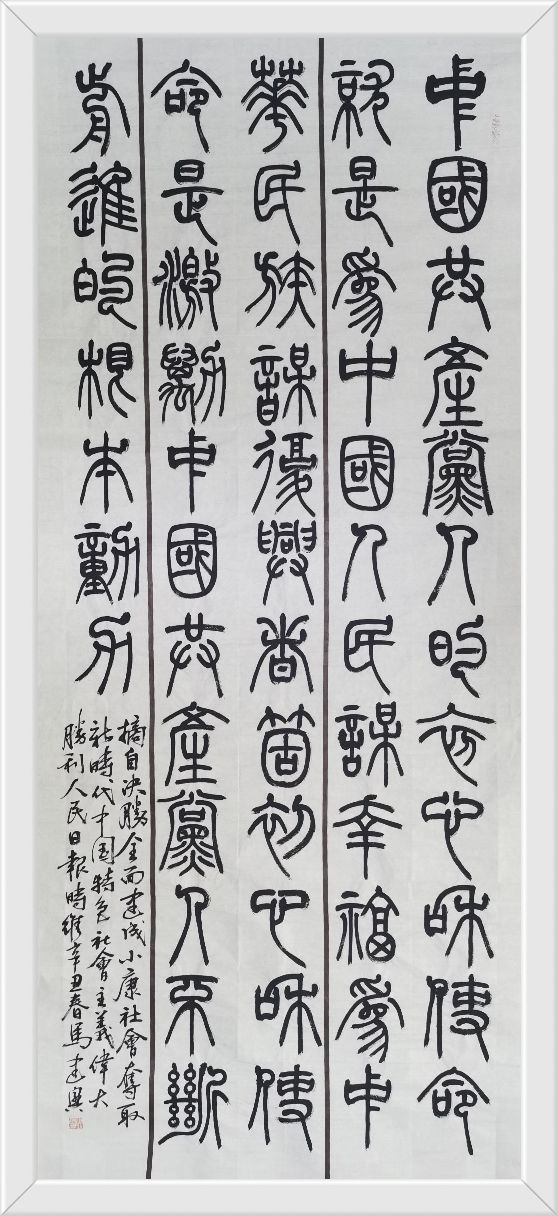 中國共產黨人的初心和使命
就是爲中國人民謀幸福爲中
華民族謀復興這箇初心和使
命是激勵中國共產黨人不斷
前進的根本動力
摘自决勝全面建成小康社會奪取
新時代中国特色社會主義偉大
勝利人民日報時維辛丑春馬建興